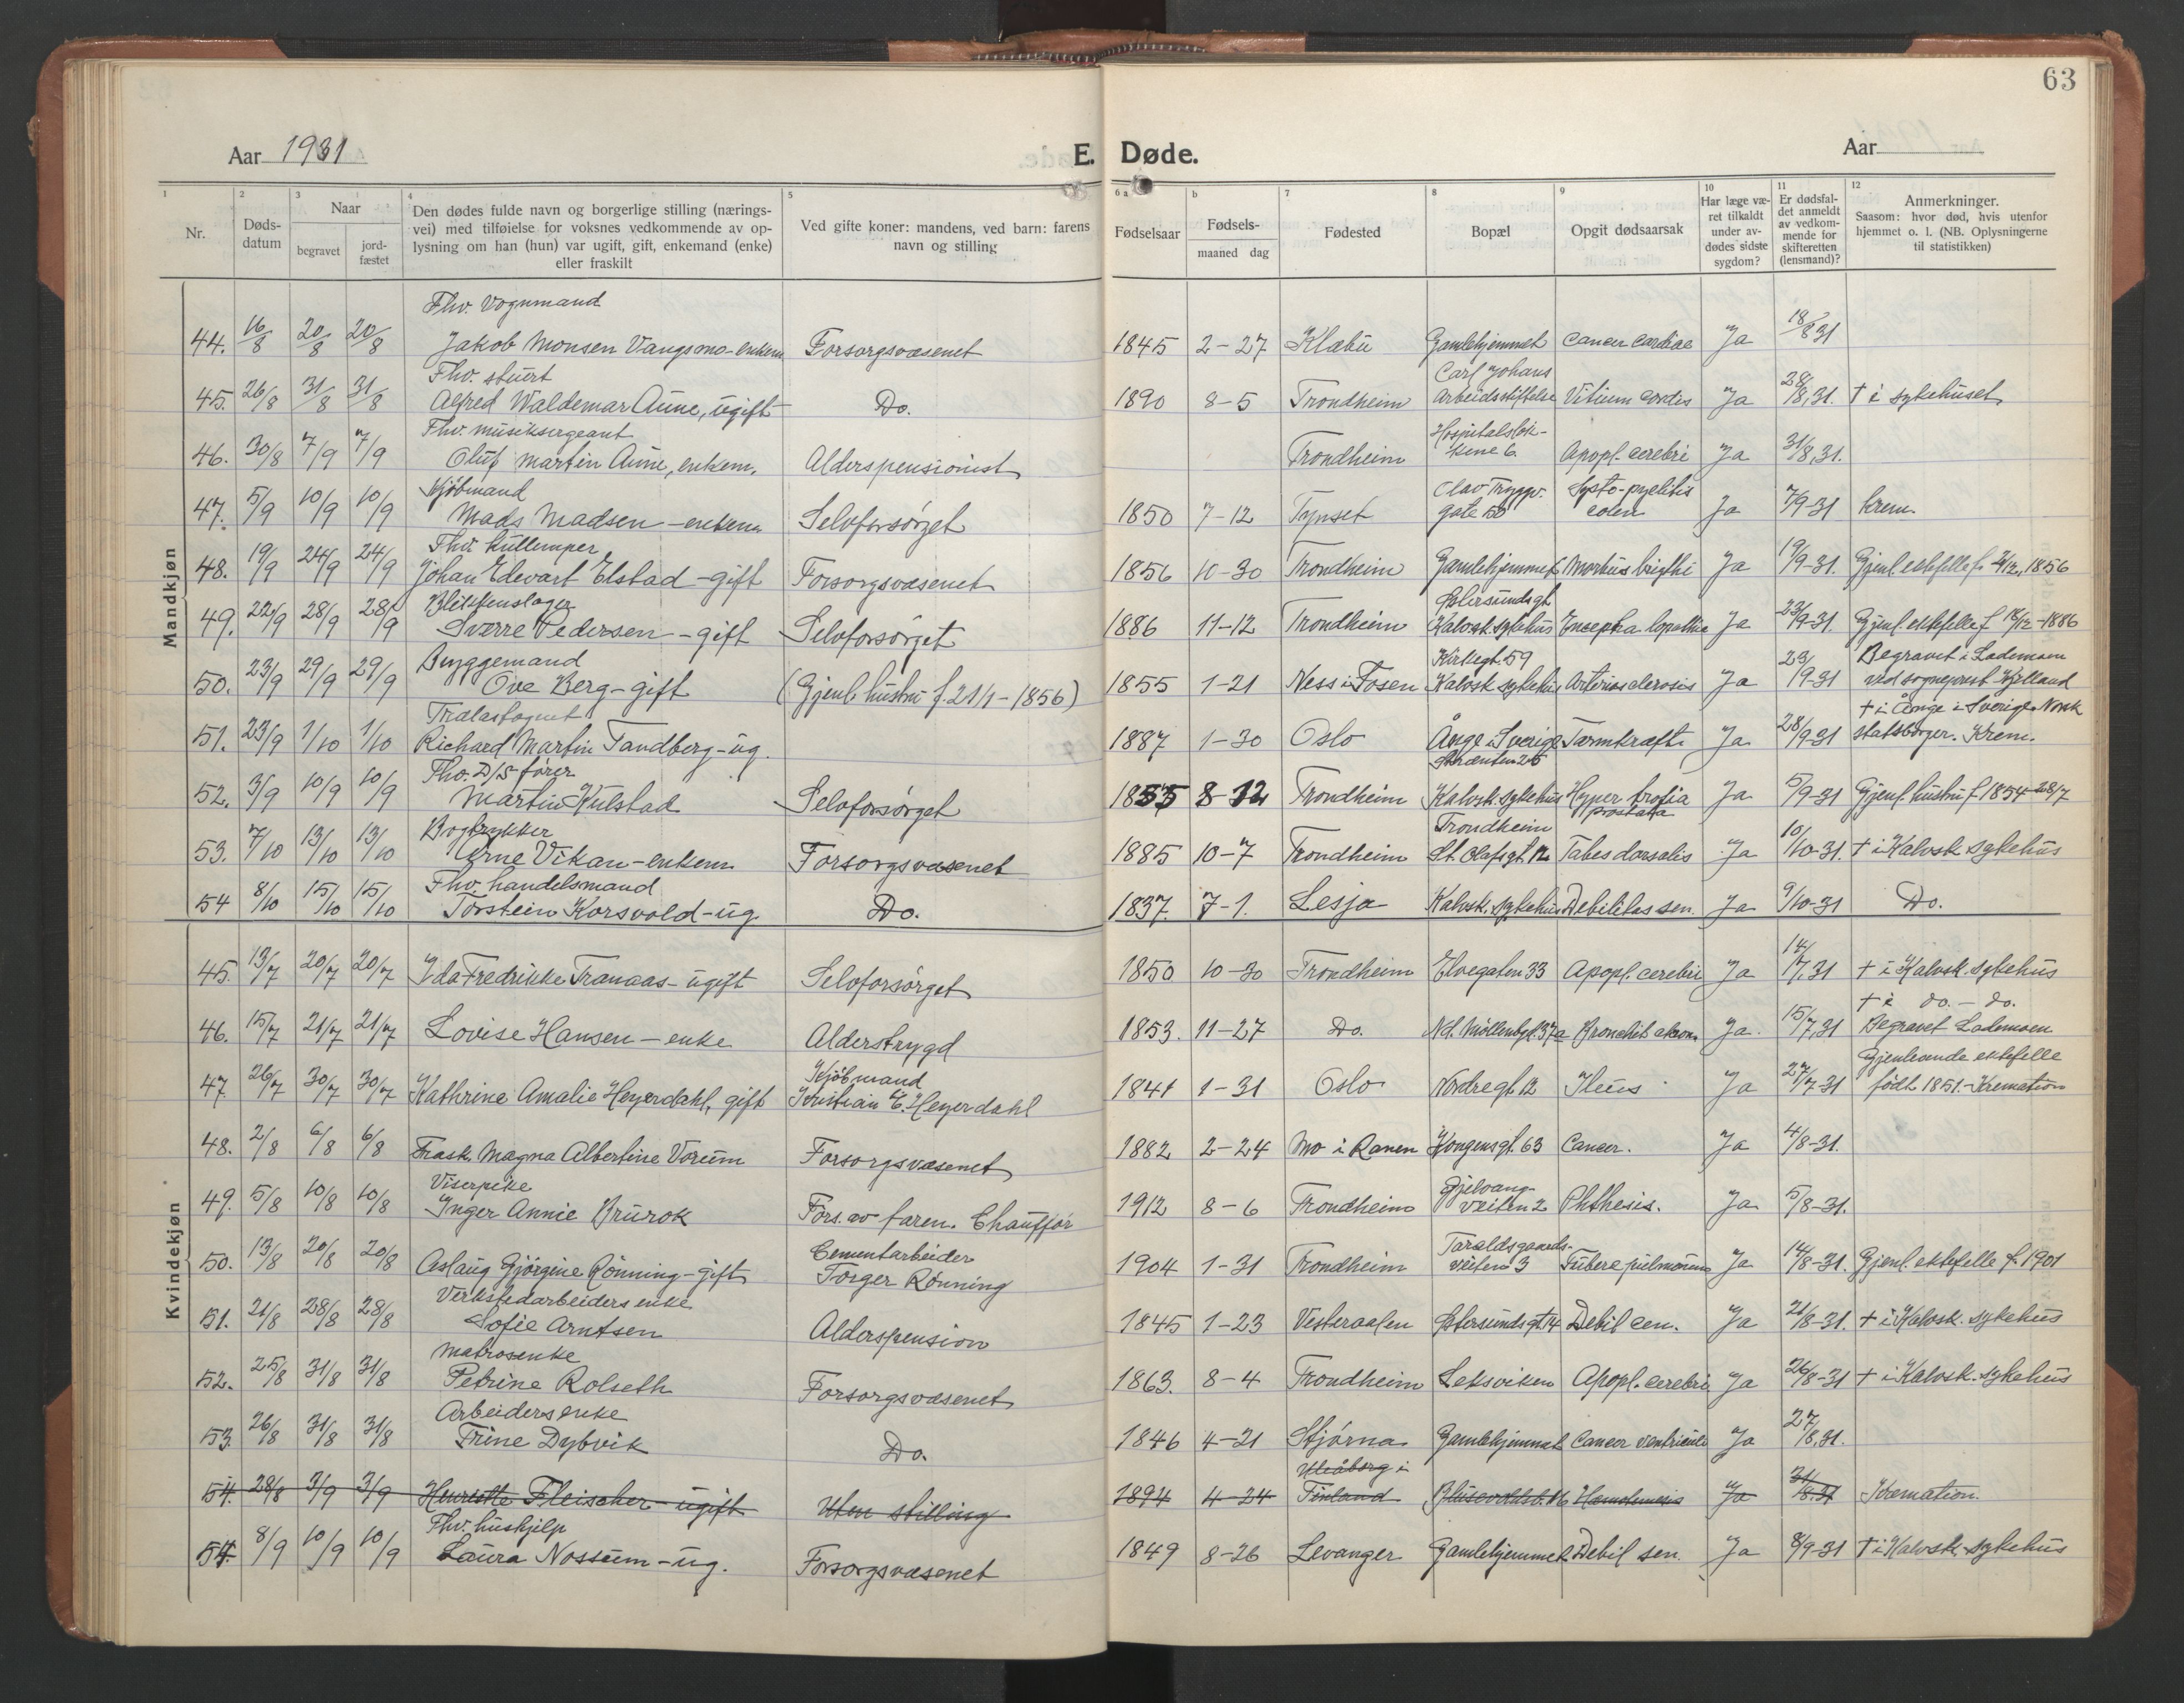 63
Aar 1931 E. Døde. Aar
1 2 3 4 5 6 a b 7 8 9 10 11 12
Nr.
Døds-
datum
Naar
begravet
jord-
fæstet
Den dødes fulde navn og borgerlige stilling (nærings-
vei) med tilføielse for voksnes vedkommende av op-
lysning om han (hun) var ugift, gift, enkemand (enke)
eller fraskilt
Ved gifte koner: mandens, ved barn: farens
navn og stilling
Fødselsaar
Fødsels-
maaned dag
Fødested
Bopæl
Opgit dødsaarsak
Har læge væ-
ret tilkaldt
under av-
dødes sidste
sygdom?
Er dødsfal-
det anmeldt
av vedkom-
mende for
skifteretten
(lensmand)?
Anmerkninger.
Saasom: hvor død, hvis utenfor
hjemmet o. l. (NB. Oplysningerne
til statistikken)
Mandkjøn
Fhv. Vognmand
44. 16/8 20/8 20/8 Jakob Monsen Vangsmo-enkem Forsorgsvæsenet 1845 2-27 Klæbu Gamlehjemmet Cancer cardiae Ja 18/8 31
Fhv. stuert Carl Johans
45. 26/8 31/8 31/8 Alfred Waldemar Aune, ugift Do. 1890 8-5 Trondheim Arbeidsstiftelse Vitium cordis Ja 28/8,31. † i sykehuset
Fhv. musiksergeant Hospitalsløk-
46. 30/8 7/9 7/9 Oluf Martin Aune, enkem. Alderspensionist Trondheim kene 6 Apopl. cerebri Ja 31/8,31.
Kjøbmand Olav Tryggv. Systo-pyelitis
47. 5/9 10/9 10/9 Mads Madsen - enkem Selvforsørget 1850 7-12 Tynset gate 50 Ja 7/9-31 Krem.
Fhv. kullemper
48. 19/9 24/9 24/9 Johan Edevart Elstad - gift Forsorgsvæsenet 1856 10-30 Trondheim Gamlehjemmet Morbus brigthi Ja 19/9-31. Gjenl. ektefelle f. 1856
Blikkenslager Østersundsgt.
49. 22/9 28/9 28/9 Sverre Pedersen - gift Selvforsørget 1886 11-12 Trondheim Kalvsk. sykehus Ja 23/9-31. Gjenl. ektefelle f 1886
Bryggemand Kirkegt. 59 Begravet i Lademoen
50. 23/9 29/9 29/9 Ove Berg - gift (Gjenl hustru f. 21/1 - 1856) 1855 1-21 Ness i Fosen Kalvsk sykehus Arteriosclerosis Ja 23/9 31 ved sogneprest Kjelland
† i Ånge i Sverige. Norsk
51. 23/9 1/10 1/10 Richard Martin Tandberg - ug. 1887 1-30 Oslo Ånge i Sverige Tarmkræft Ja 28/9-31 statsborger. Krem.
Fhv. D/S fører
52. 3/9 10/9 10/9 Martin Kulstad Selvforsørget 1855 8-12 Trondheim Kalvsk. sykehus Hyper trofia prostata Ja 5/9-31 Gjenl. hustru f 1854 28/7
Bogtrykker Trondheim
53. 7/10 13/10 13/10 Arne Vikan - enkem Forsorgsvæsenet 1885 10-7 Trondheim St. Olafsgt. 12 Tabes dorsalis Ja 10/10-31. † i Kalvsk. sykehus
Fhv. handelsmand
54 8/10 15/10 15/10 Torstein Korsvold - ug. Do. 1837. 7-1. Lesja Kalvsk. sykehus Debilitas sen. Ja 9/10-31 Do.
Kvindekjøn
45. 13/7 20/7 20/7 Ida Fredrikke Tranaas - ugift Selvforsørget 1850 10-30 Trondheim Elvegaten 33 Apopl. cerebri Ja 14/7,31 † i Kalvsk. sykehus
† i do. - do.
46. 15/7 21/7 21/7 Lovise Hansen - enke Alderstrygd 1853. 11-27 Do. Nd. Møllenbgt. 37a Ja. 15/7,31 Begravet Lademoen
Kjøbmand Gjenlevende ektefelle
47. 26/7 30/7 30/7 Kathrine Amalie Heyerdahl, gift Kristian E. Heyerdahl 1841 1-31 Oslo Nordregt. 12 Ileus Ja 27/7-31 født 1851.-Kremation
48. 2/8 6/8 6/8 Frask. Magna Albertine Vorum Forsorgsvæsenet 1882 2-24 Mo i Ranen Kongensgt. 63 Cancer. Ja 4/8-31.
Viserpike Gjelvang-
49. 5/8 10/8 10/8 Inger Annie Brurok Fors. av faren. Chauffør 1912 8-6 Trondheim veiten 2 Phthesis. Ja 5/8-31.
Cementarbeider Taraldsgaards-
50. 13/8 20/8 20/8 Aslaug Gjørgine Rønning - gift Torger Rønning 1904 1-31 Trondheim veiten 3 Ja 14/8-31. Gjenl. ektefelle f. 1901
Verkstedarbeiders enke
51. 21/8 28/8 28/8 Sofie Arntsen Alderspension 1845 1-23 Vesteraalen Østersundsgt. 14 Debil sen. Ja 21/8-31. † i Kalvsk. sykehus
Matrosenke
52. 25/8 31/8 31/8 Petrine Rolseth Forsorgsvæsenet 1863. 8-4 Trondheim Leksviken Apopl. cerebri Ja 26/8-31 † i Kalvsk. sykehus
Arbeiders enke
53. 26/8 31/8 31/8 Trine Dybvik Do. 1846 4-21 Stjørna Gamlehjemmet Cancer ventriculi Ja 27/8,31.
Uleåborg i
54. 28/8 3/9 3/9 Henriette Fleischer - ugift Uten stilling 1894 4-24 Finland Ja 31/8.31 Kremation.
Fhv. huskjelp
54. 8/9 10/9 10/9 Laura Nossum - ug. Forsorgsvæsenet 1849 8-26 Levanger Gamlehjemmet Debil sen. Ja 8/9-31 † i Kalvsk. sykehus